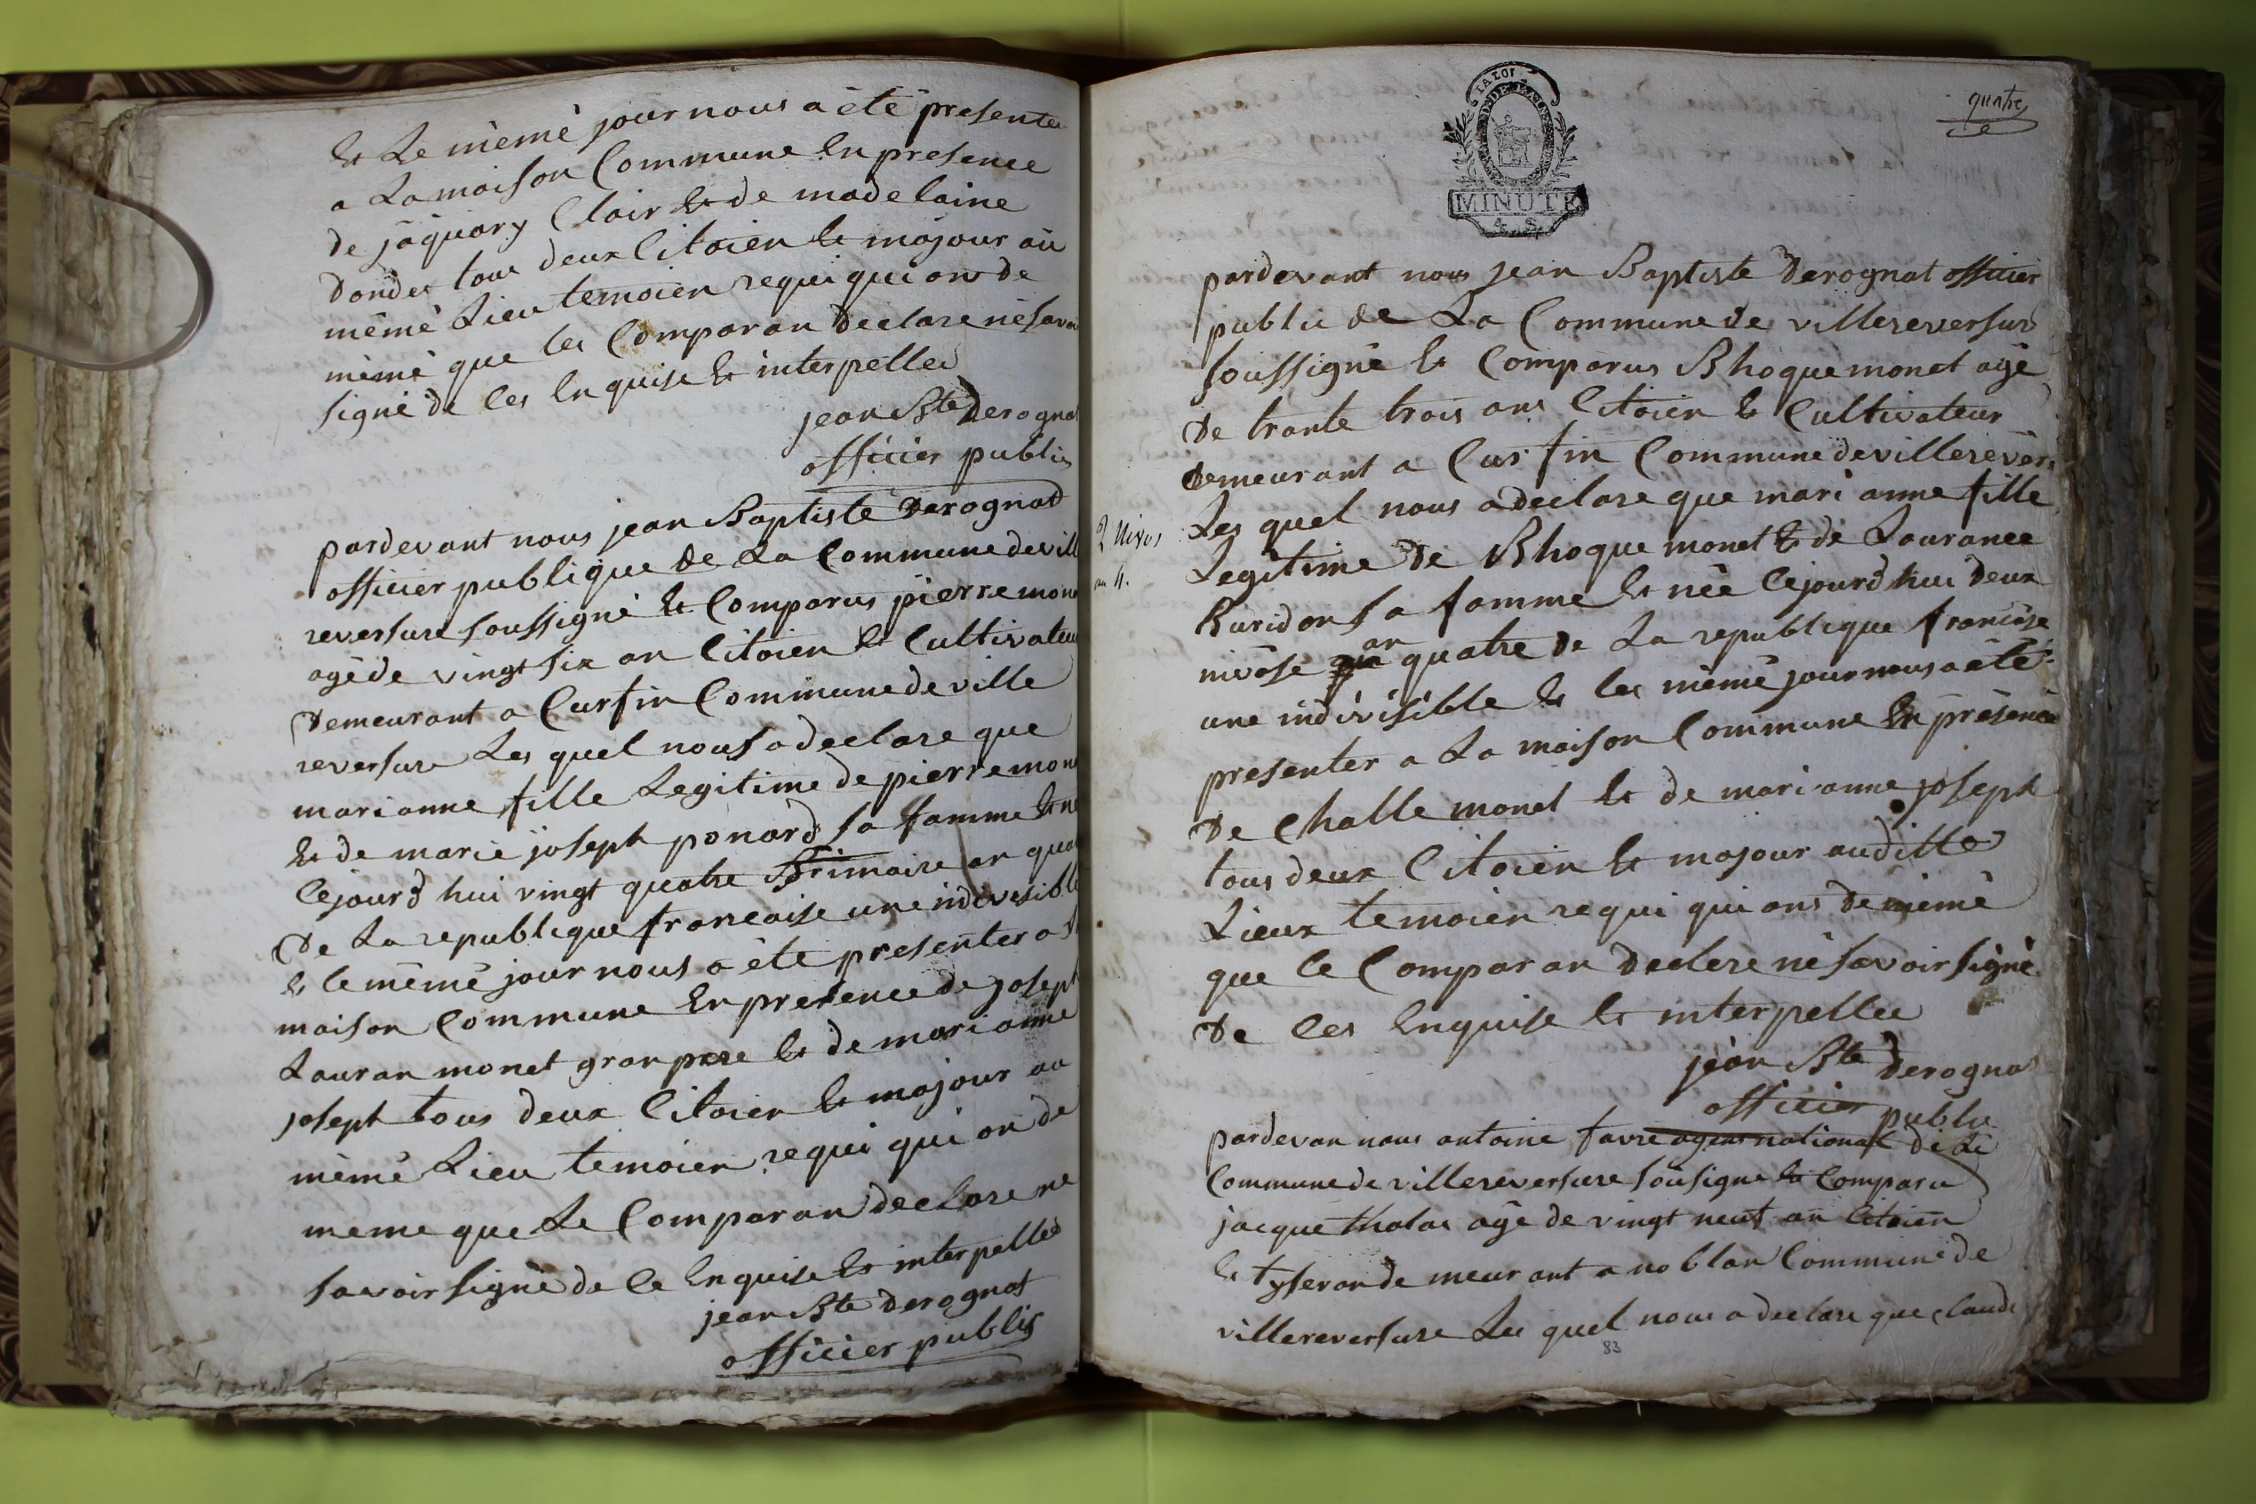 et Le mème jour nous a été presenter
a La maison Commune En presence
de jaquary Clair et de madelaine
Dondet tous deux Citoien et majour au
mêmè Lieu temoien requi qui on de
mèmè que les Comparan declare nésavoi
signé de ces Enquise et interpellee
jean Bte Derogna
officier public
pardevant nous jean Baptiste Derognat
officier publique de La Commune de vill
reversure soussigné et Comparus pierre mon
agé de vingt six an Citoien et Cultivateu
Demeurant a Curfin Commune de ville
reversure Les quel nous a declare que
marianne fille Legitime de pierre mon
et de marie joseph ponard sa famme et ne
Cejourd hui vingt quatre Brimaire an qua
De La republique francaise une indivisibl
et le mèmè jour nous a été presenter a L
maison Commune En presence de joseph
Lauran monet gran pere et de marianne
josept tous deux Citoien et majour au
mèmè Lieu temoien requi qui on de
meme que Le Comparan declare ne
savoir signè de ce Enquise et interpellée
jean Bte derognat
officier public
quatre
LA LOI
MINUTE
4. S.
pardevant nous jean Baptiste Derognat officier
public de La Commune de villereversure
soussigné et Comparus Rhoque monet agé
De trante trois ans Citoien et Cultivateur
Demeurant a Curfin Commune de villerevers
Les quel nous a declare que marianne fille
2 Nivos
an 4.
Legitime De Rhoque monet et de Laurance
Buridon sa famme et née Cejourd hui deux
nivose an quatre de La republique francaise
une indivisible et les mème jour nous a été
presenter a La maison Commune En présence
De Challe monet et de marianne joseph
tous deux Citoien et majour audille
Lieux temoien requi qui ons De mèmè
que Le Comparan declere né savoir signé
De Ces Enquise et interpellee
jean Bte derogna
officier public
pardevan nous antoine favre agens national de La
Commune de villereversure sousigne et Comparu
jacque thalas agé de vingt neuf an Citoien
et tyseran demeurant a noblan Commune de
villereversure Les quel nous a declare que claude
83